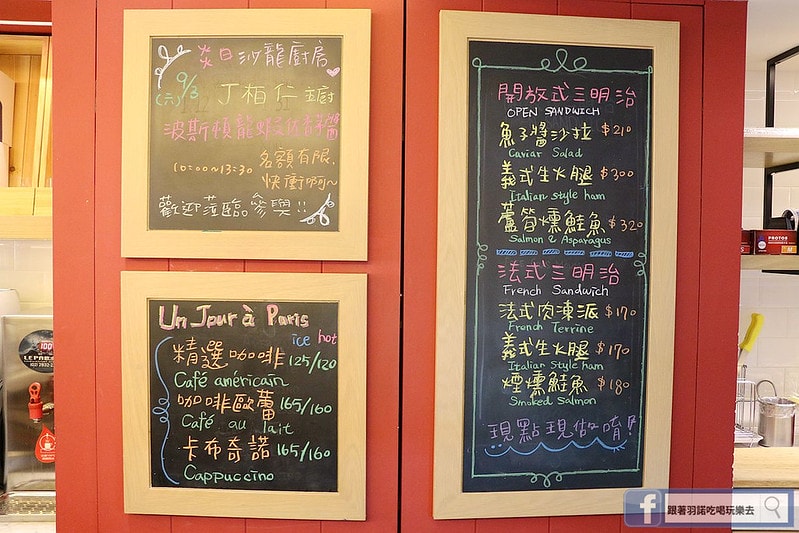 炎日沙龍廚房
9/3
(六)
丁柏仁 主廚
波斯頓龍蝦
10:00~13:30
名額有限、
快衝啊~
歡迎蒞臨參與!!
Un Jour à Paris
ice hot
精選咖啡 125/120
Café américain
咖啡歐蕾 165/160
Café au lait
卡布奇諾 165/160
Cappuccino
開放式三明治
OPEN SANDWICH
魚子醬沙拉 $210
Caviar Salad
義式生火腿 $300
Italian style ham
蘆筍燻鮭魚 $320
Salmon & Asparagus
法式三明治
French Sandwich
法式肉凍派 $170
French Terrine
義式生火腿 $170
Italian style ham
煙燻鮭魚 $180
Smoked Salmon
現點現做唷!
100
LEPAN
PROTOS
M
f 跟著羽諾吃喝玩樂去